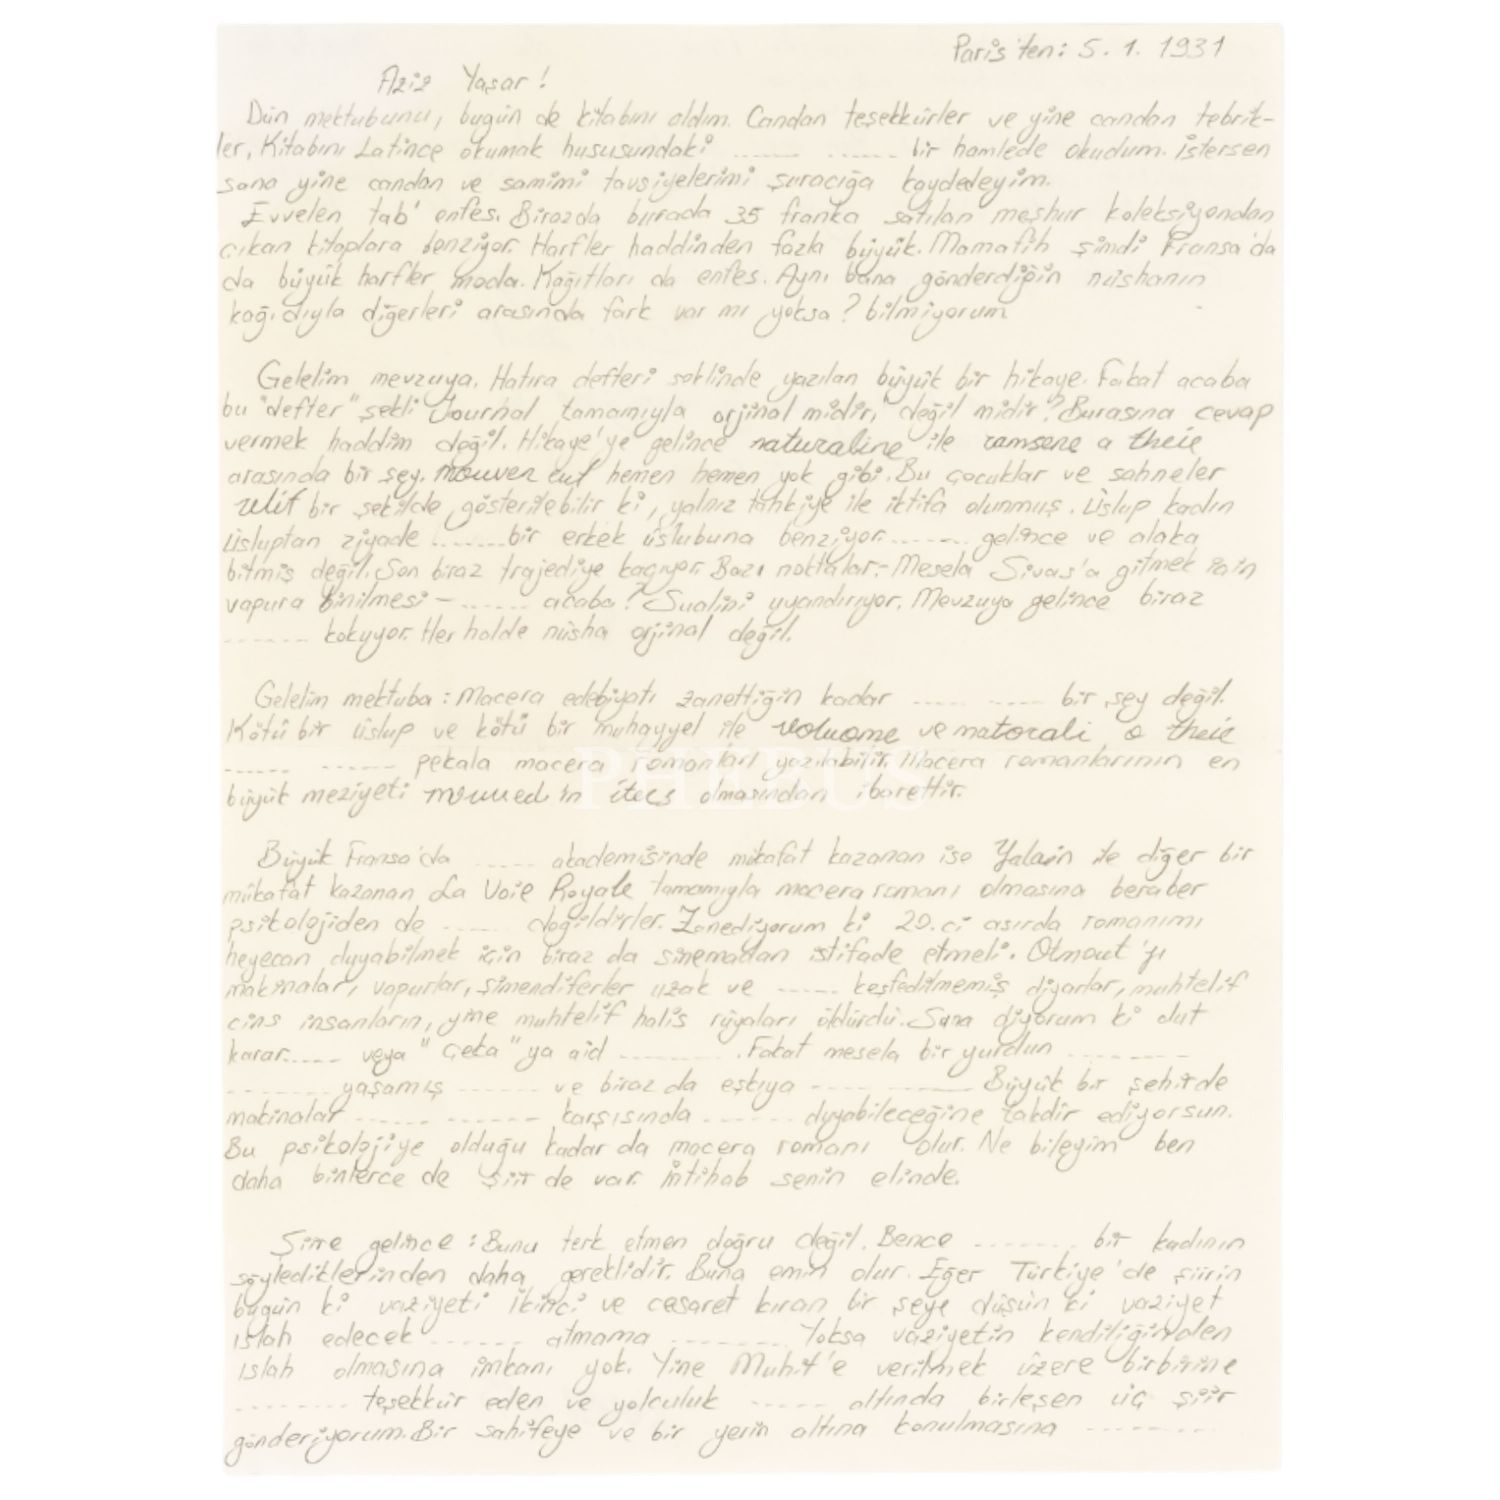 Paris'ten: 5. 1. 1931
Aziz Yaşar!
Dün mektubunu, bugün de kitabını aldım. Candan teşekkürler ve yine candan tebrik-
ler, Kitabını Latince okumak hususundaki ...... ...... bir hamlede okudum. İstersen
sana yine candan ve samimi tavsiyelerimi şuracığa kaydedeyim.
Evvelen tab' enfes. Birazda burada 35 franka satılan meşhur koleksiyondan
çıkan kitaplara benziyor. Harfler haddinden fazla büyük. Mamafih şimdi Fransa'da
da büyük harfler moda. Kağıtları da enfes. Aynı bana gönderdiğin nüshanın
kağıdıyla diğerleri arasında fark var mı yoksa? bilmiyorum
Gelelim mevzuya. Hatıra defteri şeklinde yazılan büyük bir hikaye. Fakat acaba
bu "defter" şekli Journal tamamıyla orjinal midir, değil midir? Burasına cevap
vermek haddim değil. Hikaye'ye gelince naturaline ile a theie
arasında bir şey. hemen hemen yok gibi. Bu çocuklar ve sahneler
bir şekilde gösterilebilir ki, yalnız tahkiye ile iktifa olunmuş. Üslup kadın
üsluptan ziyade ...... bir erkek üslubuna benziyor. ...... gelince ve alaka
bitmiş değil. Son biraz trajediye kaçıyor. Bazı noktalar.- Mesela Sivas'a gitmek için
vapura binilmesi - ...... acaba? Sualini uyandırıyor. Mevzuya gelince biraz
...... kokuyor. Her halde nüsha orjinal değil.
Gelelim mektuba: Macera edebiyatı zanettiğin kadar ..... ..... bir şey değil.
Kötü bir üslup ve kötü bir muhayyel ile voluome ve matorali o theie
...... ...... pekala macera romanları yazılabilir. Macera romanlarının en
büyük meziyeti olmasından ibarettir.
PHEBUS
Büyük Fransa'da ..... akademisinde mükafat kazanan ise Yalain ile diğer bir
mükafat kazanan La Voie Royale tamamıyla macera romanı olmasına beraber
psikolojiden de ..... değildirler. Zanediyorum ki 20.ci asırda romanımı
heyecan duyabilmek için biraz da sinemadan istifade etmeli. 
makinalar, vapurlar, şimendiferler uzak ve ..... keşfedilmemiş diyarlar, muhtelif
cins insanların, yine muhtelif halis rüyaları öldürdü. Sana diyorum ki dut
karar..... veya "Çeka"ya aid ........ . Fakat mesela bir yurdun ........
....... yaşamış ...... ve biraz da eşkıya ..... ...... Büyük bir şehirde
makinalar ...... ...... karşısında ...... duyabileceğine takdir ediyorsun.
Bu psikolojiye olduğu kadar da macera romanı olur. Ne bileyim ben
daha binlerce de şiir de var. İntihab senin elinde.
Şiire gelince: Bunu terk etmen doğru değil. Bence ....... bir kadının
söylediklerinden daha gereklidir. Buna emin olur. Eğer Türkiye'de şiirin
bugün ki vaziyeti ikinci ve cesaret kıran bir şeye düşün ki vaziyet
ıslah edecek ...... atmama ....... Yoksa vaziyetin kendiliğinden
ıslah olmasına imkanı yok. Yine Muhit'e verilmek üzere birbirine
........ teşekkür eden ve yolculuk ..... altında birleşen üç şiir
gönderiyorum. Bir sahifeye ve bir yerin altına konulmasına ........